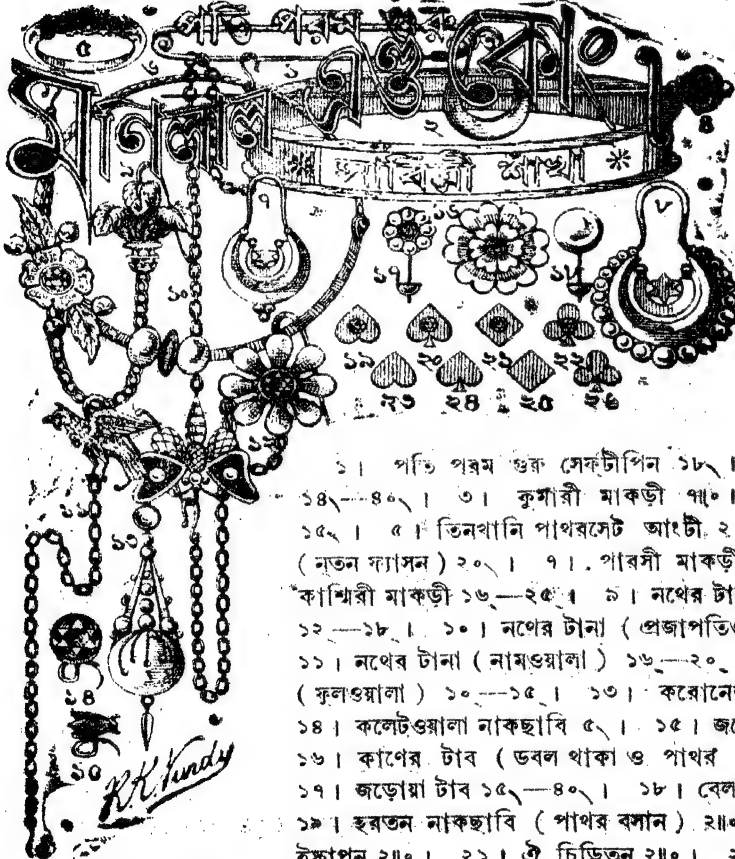 পতি পরম গুরু
সাবিত্রী শাঁখা
৫
৬
১
২
৪
৯
৭
৮
১০
১৬
১৭
১৮
১৯ ২০ ২১ ২২
২৩ ২৪ ২৫ ২৬
১২
১১
১৩
১৪
১৫
R.K. Nundy
১। পতি পরম গুরু সেফ্‌টীপিন ১৮৲।
১৪৲—৪০৲। ৩। কুমারী মাকড়ী ৭॥০।
১৫৲। ৫। তিনখানি পাথরসেট আংটী ২
(নূতন ফ্যাসন) ২০৲। ৭। পারসী মাকড়ী
কাশ্মিরী মাকড়ী ১৬৲—২৫৲। ৯। নথের টা
১২৲—১৮৲। ১০। নথের টানা (প্রজাপতিও
১১। নথের টানা (নামওয়ালা) ১৬৲—২০৲
(ফুলওয়ালা) ১০৲—১৫৲। ১৩। করোনে
১৪। কলেটওয়ালা নাকছাবি ৫৲। ১৫।
১৬। কাণের টাব (ডবল থাকা ও পাথর
১৭। জড়োয়া টাব ১৫৲—৪০৲। ১৮। বেল
১৯। হরতন নাকছাবি (পাথর বসান) ২॥০
ইস্কাপন ২॥০। ২১। ঐ চিড়িতন ২॥০।